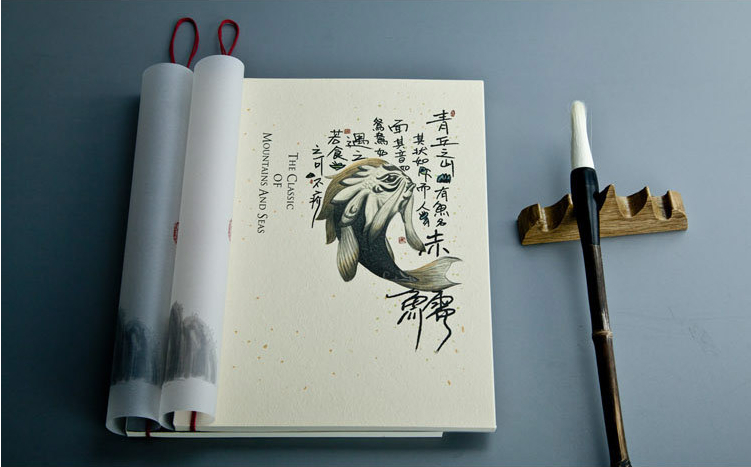 青丘之山有魚名赤鱬
其状如魚而人
面其音如
鴛鴦如
遇之
若食
之可不疥
THE CLASSIC
OF
MOUNTAINS AND SEAS